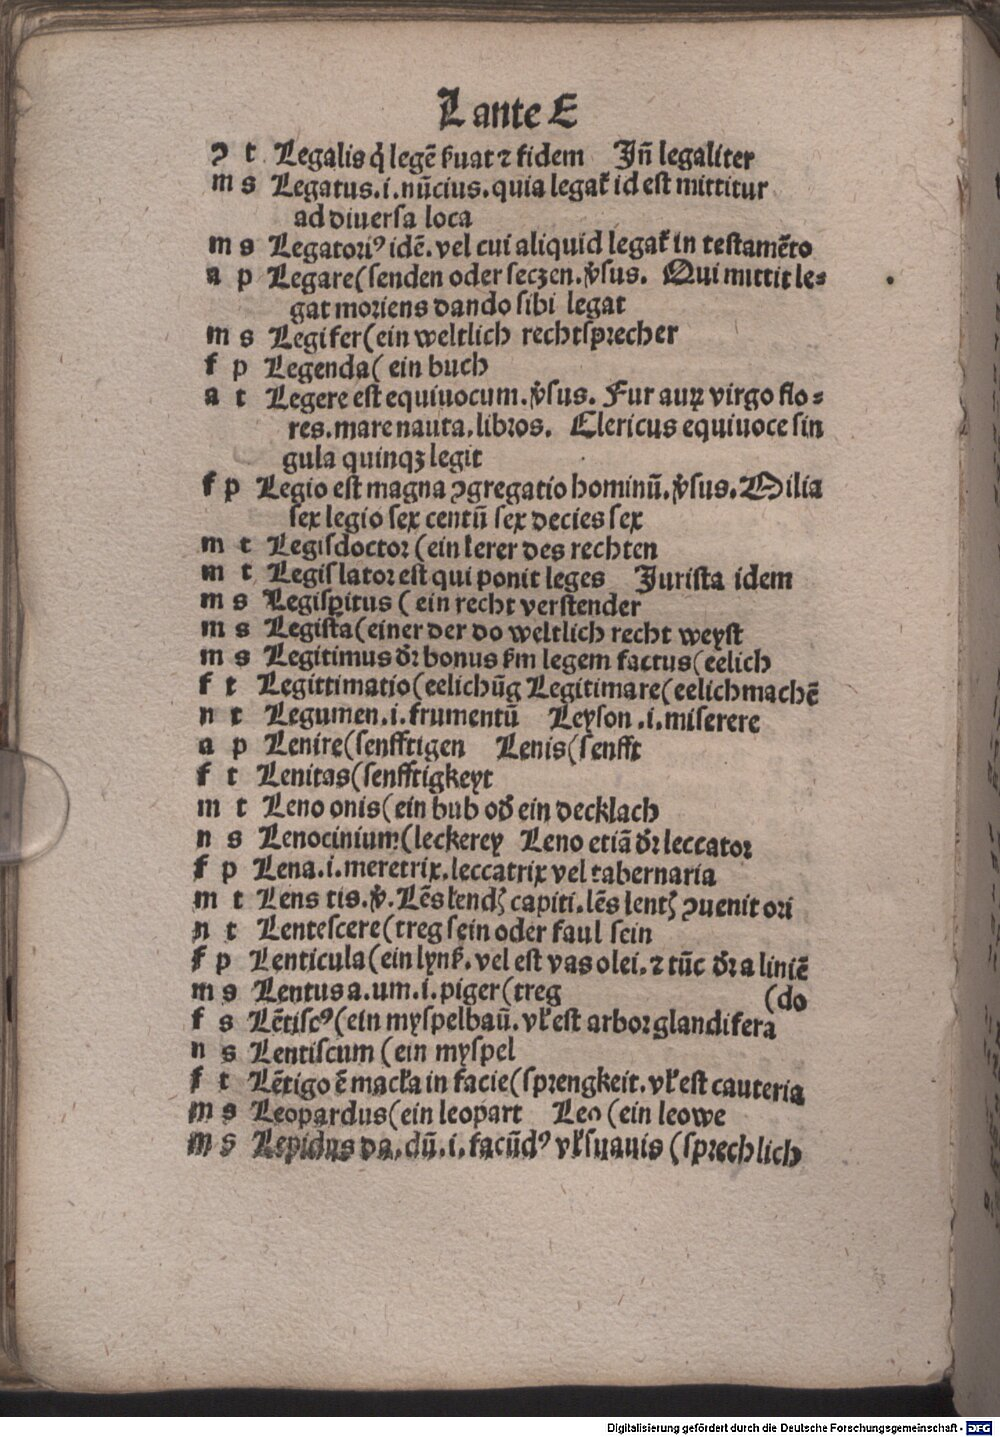 L ante E
ꝯ t Legalis q̇ legē ẜuat ⁊ fidem Jn̄ legaliter
m s Legatus.i.nūcius.quia legat᷑ id est mittitur
ad diuersa loca
m s Legatoriꝰ idē.vel cui aliquid legat᷑ in testamēto
a p Legare(senden oder seczen.v̓sus. Qui mittit le⸗
gat moriens dando sibi legat
m s Legifer(ein weltlich rechtsprecher
f p Legenda( ein buch
a t Legere est equiuocum.v̓sus. Fur auꝝ virgo flo⸗
res.mare nauta.libros. Clericus equiuoce sin
gula quinqꝫ legit
f p Legio est magna ꝯgregatio hominū.v̓sus.Milia
sex legio sex centū sex decies sex
m t Legisdoctor (ein lerer des rechten
m t Legislator est qui ponit leges Jurista idem
m s Legisꝑitus ( ein recht verstender
m s Legista(einer der do weltlich recht weyst
m s Legitimus dr̄ bonus ẜm legem factus(eelich
f t Legittimatio(eelichūg Legitimare(eelichmachē
n t Legumen.i.frumentū Leyson.i.miserere
a p Lenire(senfftigen Lenis(senfft
f t Lenitas(senfftigkeyt
m t Leno onis(ein bub od̓ ein decklach
n s Lenocinium(leckerey Leno etiā dr̄ leccator
f p Lena.i.meretrix.leccatrix vel tabernaria
m t Lens tis.v̓. Lēs lendꝭ capiti.lēs lentꝭ ꝯuenit ori
n t Lentescere(treg sein oder faul sein
f p Lenticula(ein lynß.vel est vas olei.⁊ tūc dr̄ a liniē
m s Lentus a.um.i.piger(treg (do
f s Lētiscꝰ(ein myspelbaū.vl̓ est arbor glandifera
n s Lentiscum (ein myspel
f t Lētigo ē macl̓a in facie(sprengkeit.vl̓ est cauteria
m s Leopardus(ein leopart Leo (ein leowe
m s Lepidus da.dū.i.facūdꝰ vl̓ suauis (sprechlich
Digitalisierung gefördert durch die Deutsche Forschungsgemeinschaft - DFG